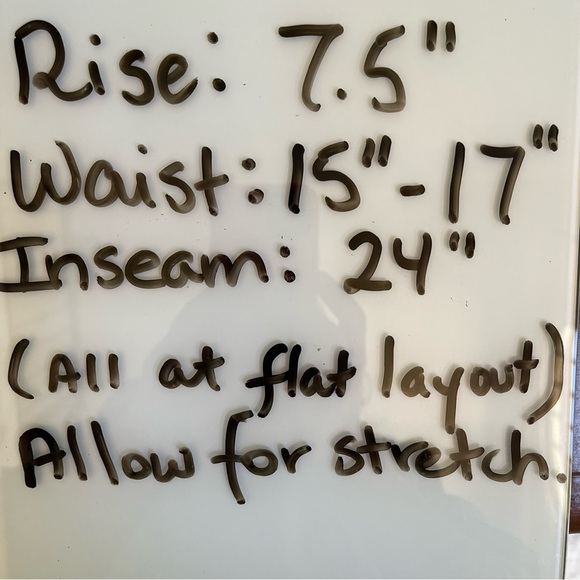 Rise: 7.5"
Waist: 15"-17"
Inseam: 24"
(All at flat layout)
Allow for stretch.